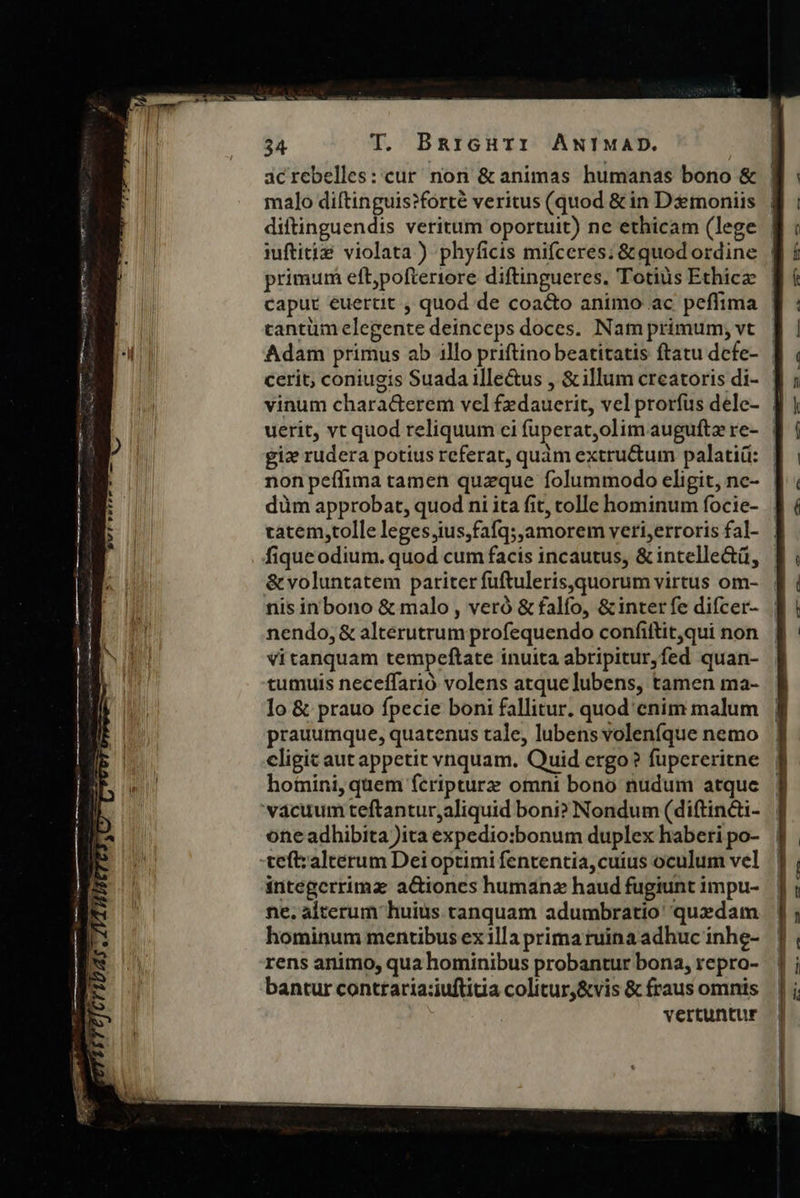 34 T. BRIGHTI ANIMAD.
ac rebelles: cur non & animas humanas bono &
malo diſtinguis?fortè veritus (quod & in Dæmoniis
diſtinguendis veritum oportuit) ne ethicam (lege
iuſtitiæ violata) phyſicis miſceres: & quod ordine
primum eſt,poſteriore diſtingueres. Totiùs Ethicæ
caput euertit , quod de coacto animo ac peſſima
tantùm elegente deinceps doces. Nam primum, vt
Adam primus ab illo priſtino beatitatis ſtatu defe-
cerit, coniugis Suada illectus , & illum creatoris di-
vinum characterem vel fædauerit, vel prorſus dele-
uerit, vt quod reliquum ei ſuperat,olim auguſtæ re-
giæ rudera potius referat, quàm extructum palatiū:
non peſſima tamen quæque ſolummodo eligit, ne-
dùm approbat, quod ni ita ſit, tolle hominum ſocie-
tatem,tolle leges,ius,faſq;,amorem veri,erroris fal-
ſique odium. quod cum facis incautus, & intellectū,
& voluntatem pariter ſuſtuleris,quorum virtus om-
nis in bono & malo , verò & falſo, & inter ſe diſcer-
nendo, & alterutrum proſequendo conſiſtit,qui non
vi tanquam tempeſtate inuita abripitur, ſed quan-
tumuis neceſſariò volens atque lubens, tamen ma-
lo & prauo ſpecie boni fallitur. quod enim malum
prauumque, quatenus tale, lubens volenſque nemo
eligit aut appetit vnquam. Quid ergo? ſupereritne
homini, quem ſcripturæ omni bono nudum atque
vacuum teſtantur,aliquid boni? Nondum (diſtincti-
one adhibita )ita expedio:bonum duplex haberi po-
teſt: alterum Dei optimi ſententia,cuius oculum vel
integerrimæ actiones humanæ haud fugiunt impu-
ne. alterum huius tanquam adumbratio quædam
hominum mentibus ex illa prima ruina adhuc inhę-
rens animo, qua hominibus probantur bona, repro-
bantur contraria:iuſtitia colitur,& vis & fraus omnis
vertuntur